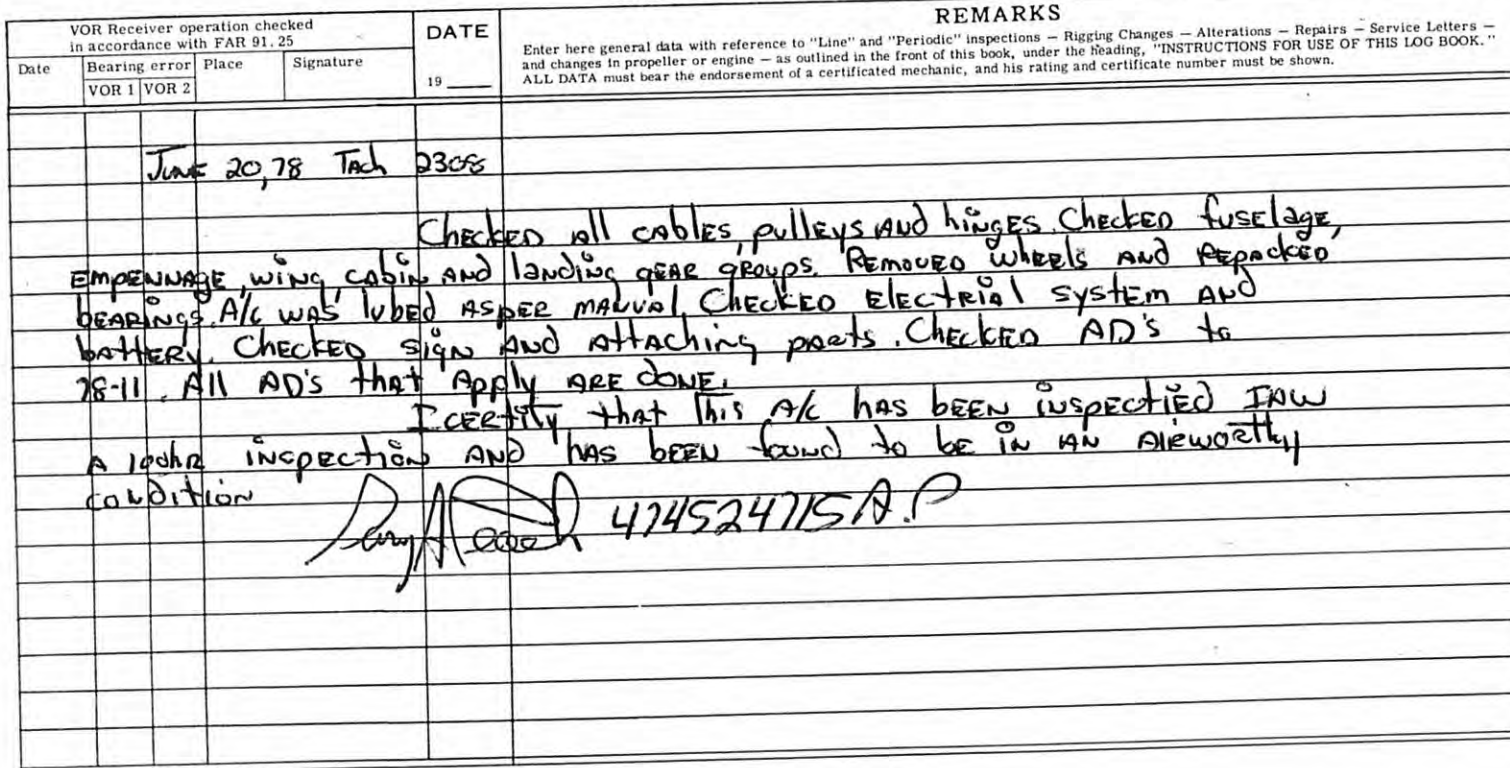 VOR Receiver operation checked
in accordance with FAR 91.25
Date
Bearing error
VOR 1 VOR 2
Place
Signature
DATE
19
REMARKS
Enter here general data with reference to "Line" and "Periodic" inspections — Rigging Changes — Alterations — Repairs — Service Letters —
and changes in propeller or engine — as outlined in the front of this book, under the heading, "INSTRUCTIONS FOR USE OF THIS LOG BOOK."
ALL DATA must bear the endorsement of a certificated mechanic, and his rating and certificate number must be shown.
JUNE 20, 78 TAch 2308
CHECKED All CABLES, pulleys AND hiNGES. CHECKED fuselage,
EMPENNAGE, wing, CABIN AND landing gEAR gROUPS. REMOVED wheels AND REpACKED
bEARINGS. A/C WAS lubed AS PER MANUAl. CHECKED ElEctRiAl systEm AND
bAttERy. CHECKED sign AND AttAching pARts. CHECKED AD's to
78-11. All AD's thAt Apply ARE dONE.
I CERtify thAt this A/C hAS bEEN iNspectiEd IAW
A 100hR iNspEctiON AND hAS bEEN found to bE iN AN AiRwoRthy
CONditiON
474524715 A.P